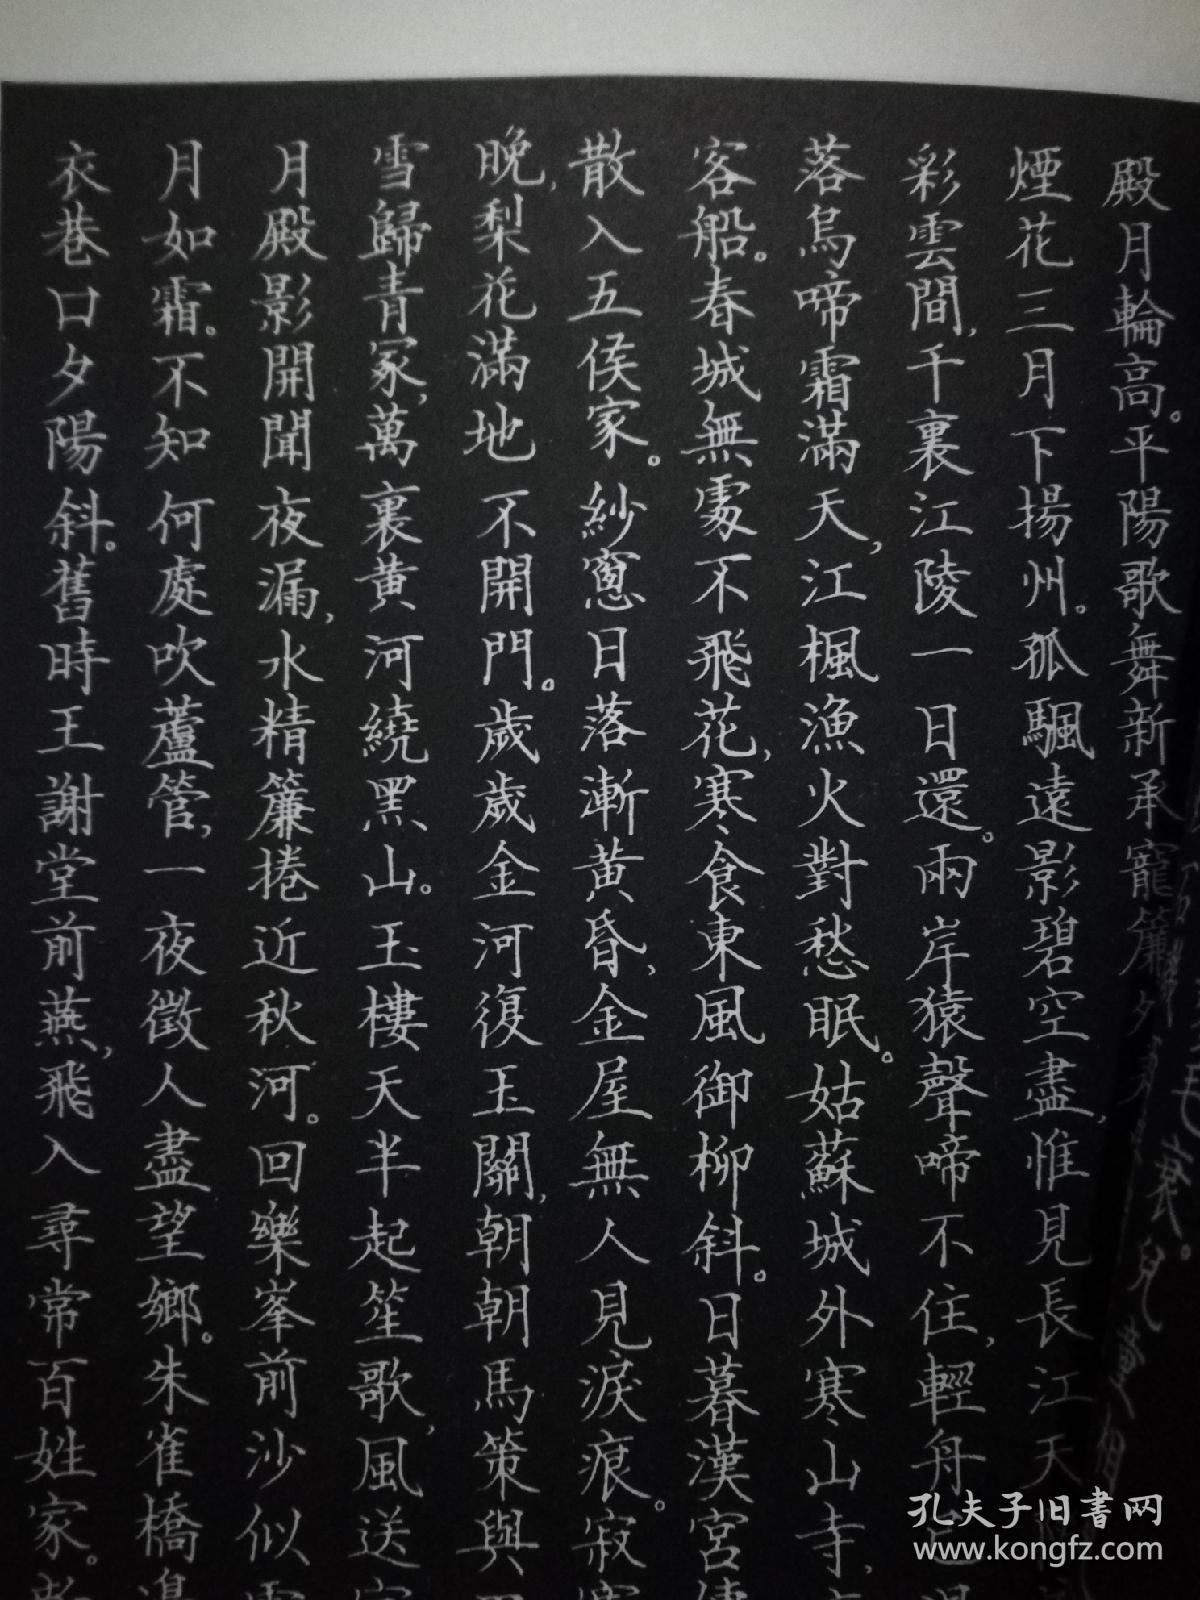 毛衰。兒童相
殿月輪高。平陽歌舞新承寵簾外春
煙花三月下揚州。孤颿遠影碧空盡,惟見長江天
彩雲間,千裏江陵一日還。兩岸猿聲啼不住,輕舟已過
落烏啼霜滿天,江楓漁火對愁眠。姑蘇城外寒山寺,
客船。春城無處不飛花,寒食東風御柳斜。日暮漢宮傳
散入五侯家。紗窻日落漸黃昏,金屋無人見淚痕。寂寞
晚,梨花滿地不開門。歲歲金河復玉關,朝朝馬策與
雪歸青冢,萬裏黃河繞黑山。玉樓天半起笙歌,風送宮
月殿影開聞夜漏,水精簾捲近秋河。回樂峯前沙似雪
月如霜。不知何處吹蘆管,一夜徵人盡望鄉。朱雀橋邊
衣巷口夕陽斜。舊時王謝堂前燕,飛入尋常百姓家。
孔夫子旧書网
www.kongfz.com